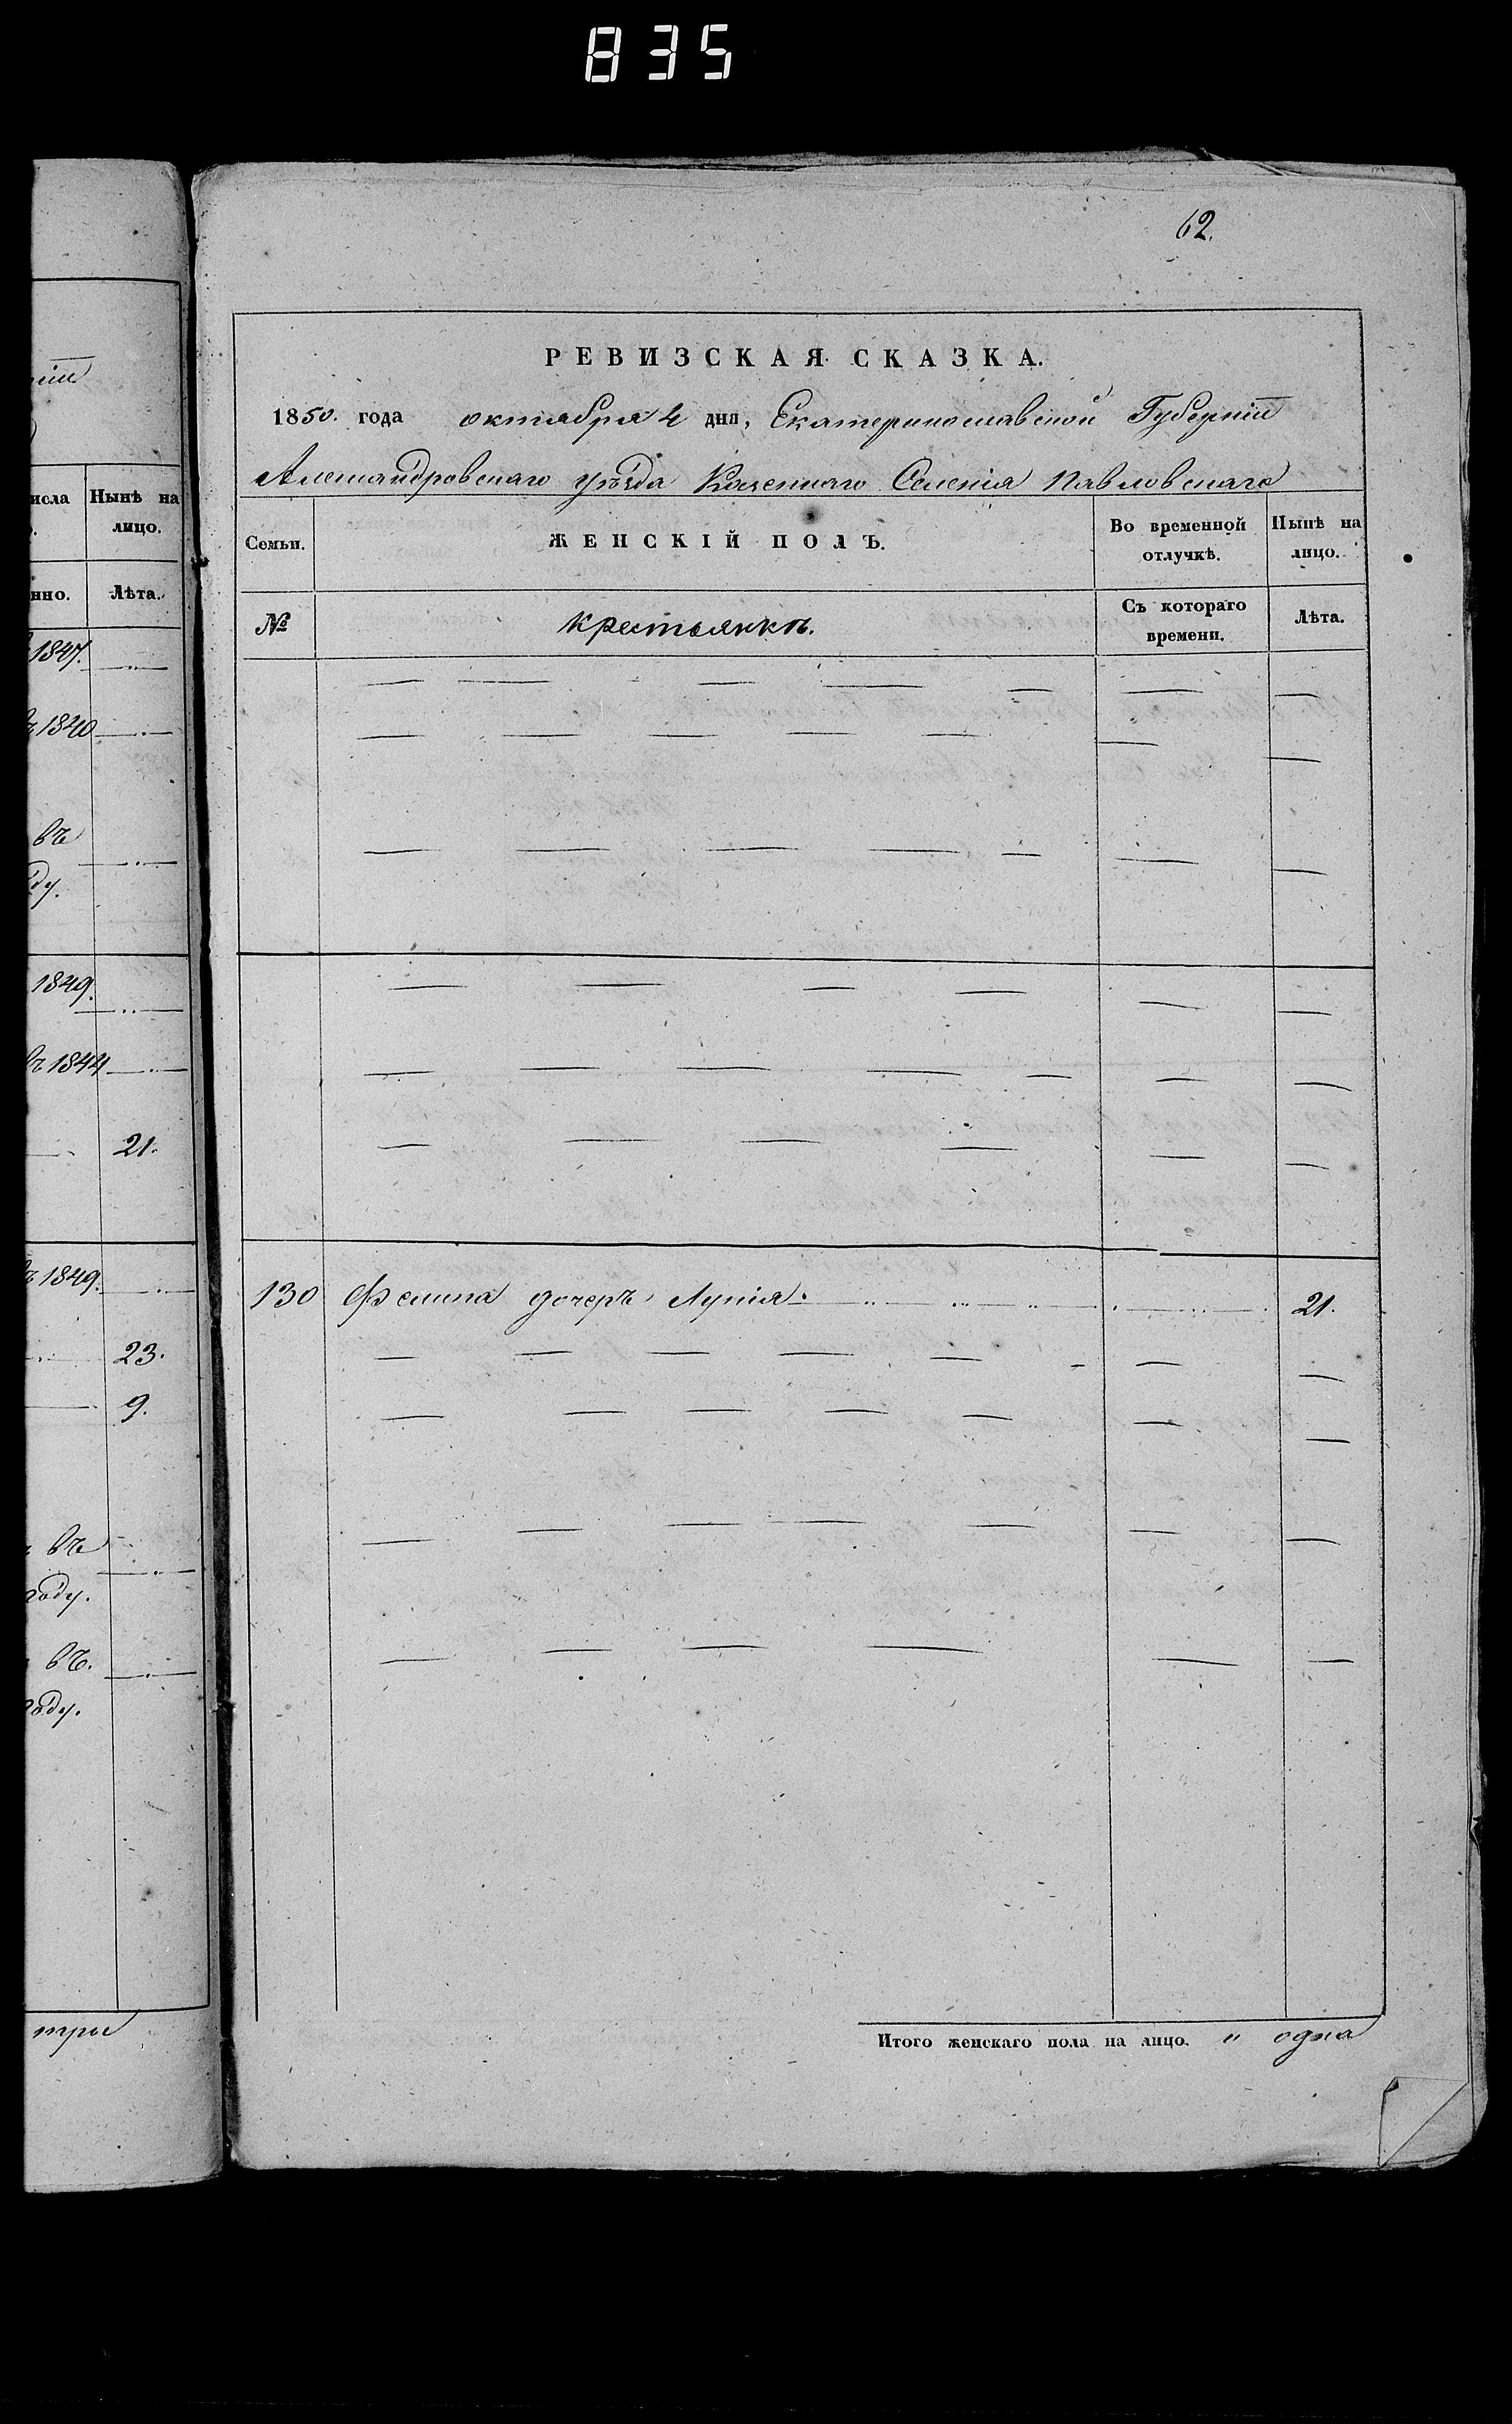 835
ніи
исла Нынѣ на
о. лицо.
нно. Лѣта.
1847.
ъ 1840
въ
ду.
1849.
въ 1844
21.
ъ 1849.
23.
9.
въ
году.
въ.
году.
три
62.
РЕВИЗСКАЯ СКАЗКА.
1850. года октября 4 дня, Екатеринославской Губерніи
Александровскаго уѣзда Казеннаго Селенія Павловскаго
Семьи. ЖЕНСКІЙ ПОЛЪ. Во временной Нынѣ на
отлучкѣ. лицо.
№ крестьянкъ. Съ котораго Лѣта.
времени.
130 дочерь 21.
Итого женскаго пола на лицо. " одна